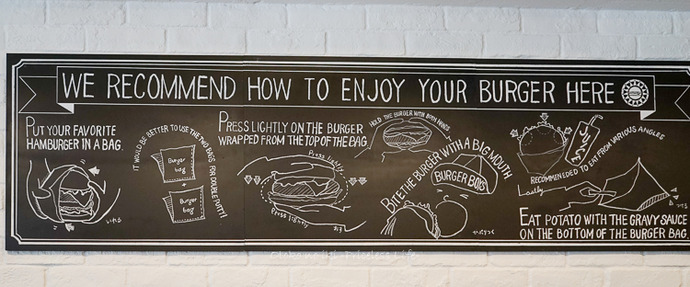 WE RECOMMEND HOW TO ENJOY YOUR BURGER HERE
PUT YOUR FAVORITE
HAMBURGER IN A BAG.
IT WOULD BE BETTER TO USE THE TWO BAGS FOR DOUBLE PATTY!
Burger
bag
+
Burger
bag
PRESS LIGHTLY ON THE BURGER
WRAPPED FROM THE TOP OF THE BAG.
Press lightly
Press lightly
HOLD THE BURGER WITH BOTH HANDS.
BITE THE BURGER WITH A BIG MOUTH
BURGER BOYS
RECOMMENDED TO EAT FROM VARIOUS ANGLES
Lastly
EAT POTATO WITH THE GRAVY SAUCE
ON THE BOTTOM OF THE BURGER BAG.